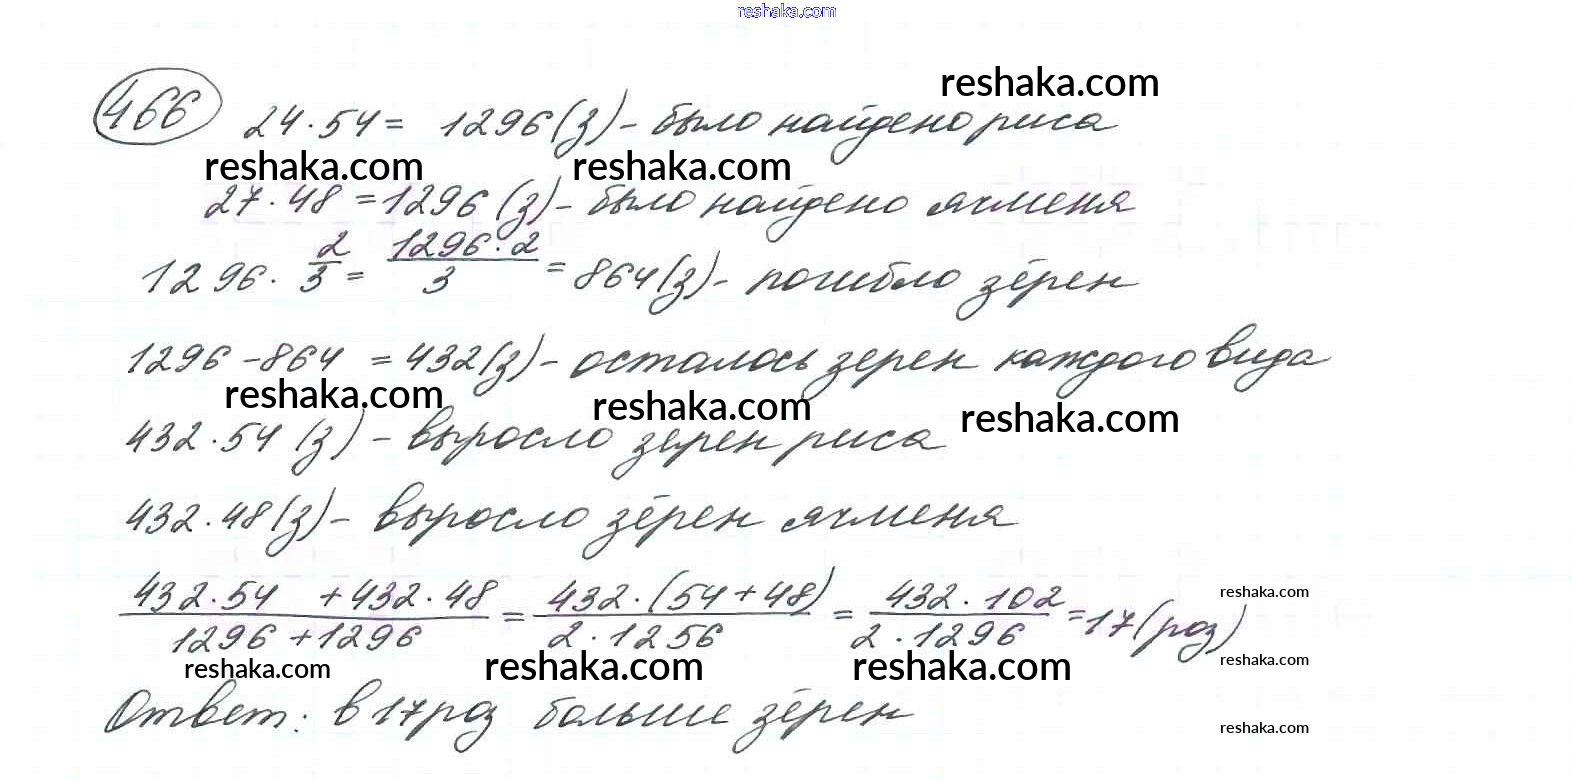 reshaka.com
reshaka.com
466 24·54= 1296(з)- было найдено риса
reshaka.com reshaka.com
27·48 =1296 (з)- было найдено ячменя
1296· 2/3 = 1296·2/3 = 864(з)- погибло зёрен
1296-864 =432(з)- осталось зерен каждого вида
reshaka.com reshaka.com reshaka.com
432·54 (з) - выросло зерен риса
432·48(з)- выросло зёрен ячменя
432·54 +432·48 / 1296+1296 = 432·(54+48) / 2·1256 = 432·102 / 2·1296 =17(роз)
reshaka.com
reshaka.com reshaka.com reshaka.com reshaka.com
Ответ: в 17 роз больше зёрен
reshaka.com